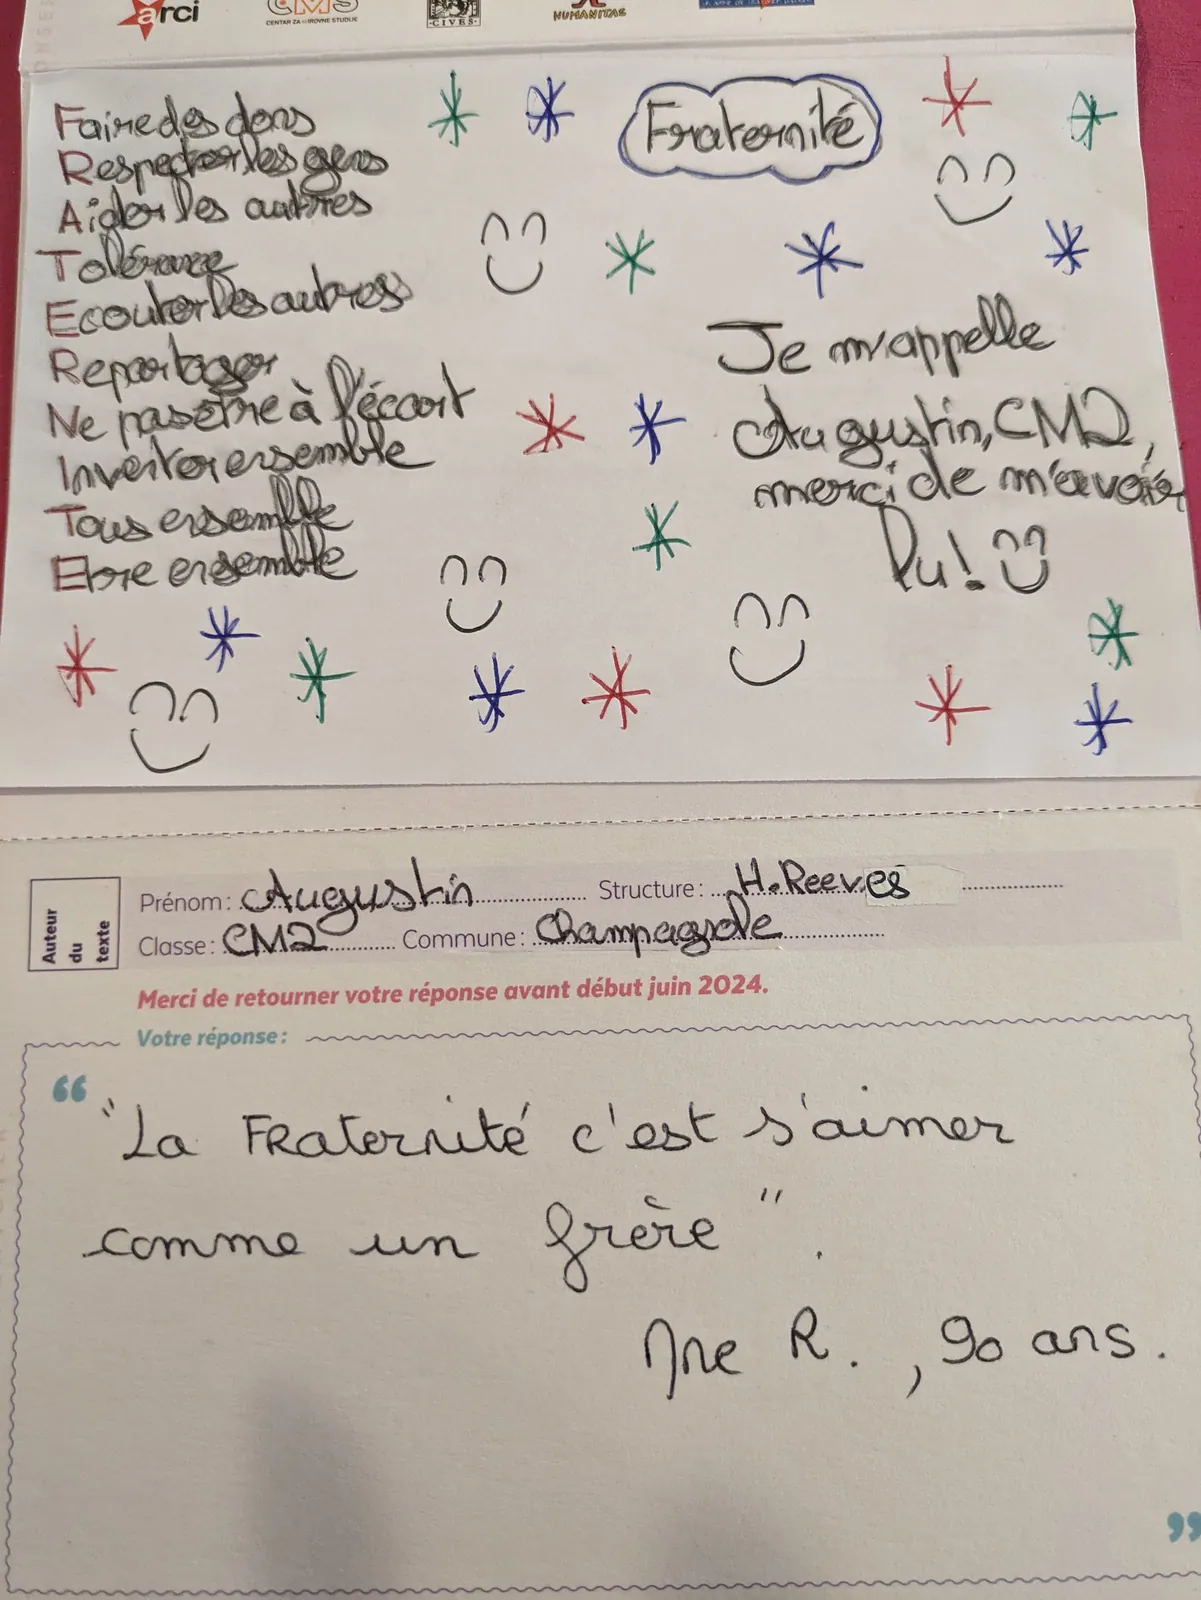 arci
CMS
CENTAR ZA MIROVNE STUDIJE
CIVES
HUMANITAS
Faire des dons
Respecter les gens
Aider les autres
Tolérance
Ecouter les autres
Repartager
Ne pas être à l'écart
Inventer ensemble
Tous ensemble
Etre ensemble
Fraternité
Je m'appelle
Augustin, CM2,
merci de m'avoir
lu!
Auteur
du
texte
Prénom: Augustin Structure: H. Reeves
Classe: CM2 Commune: Champagnole
Merci de retourner votre réponse avant début juin 2024.
Votre réponse:
“ "La Fraternité c'est s'aimer
comme un frère".
Mme R., 90 ans.
”